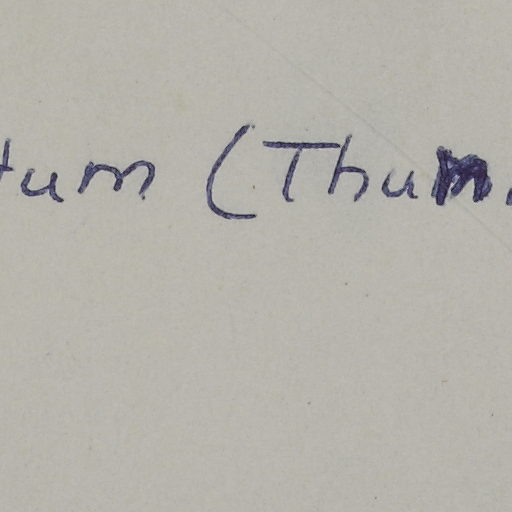 tum (Thun.